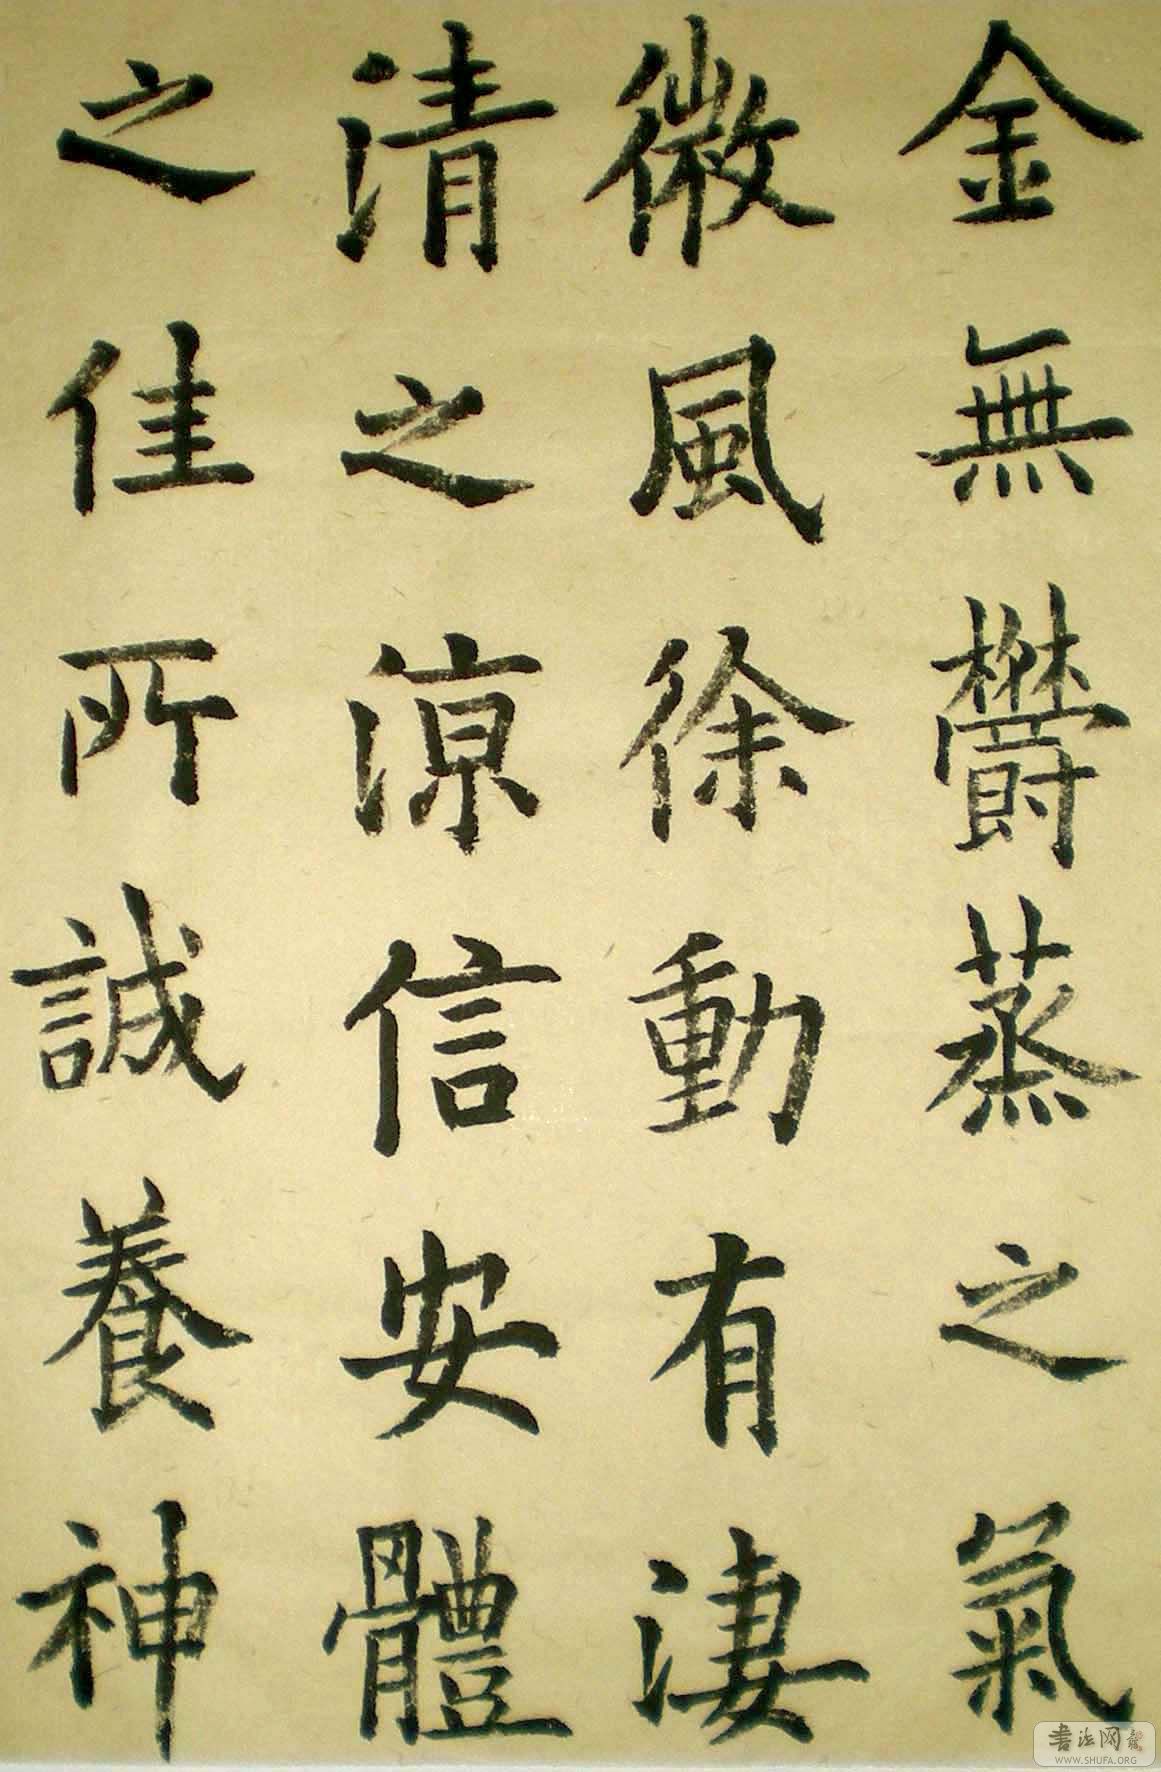 金無欝蒸之氣
微風徐動有淒
清之涼信安體
之佳所誠養神
书法网
WWW.SHUFA.ORG